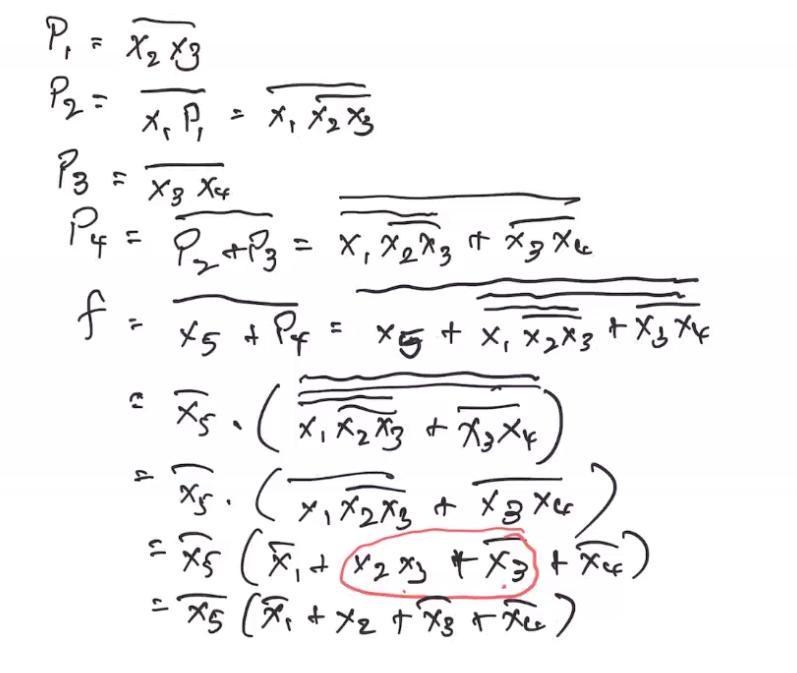 P₁ = \overline{x₂ x₃}
P₂ = \overline{x₁ P₁} = \overline{x₁ \overline{x₂ x₃}}
P₃ = \overline{x₃ x₄}
P₄ = \overline{P₂ + P₃} = \overline{\overline{x₁ \overline{x₂ x₃}} + \overline{x₃ x₄}}
f = \overline{x₅ + P₄} = \overline{x₅ + \overline{\overline{x₁ \overline{x₂ x₃}} + \overline{x₃ x₄}}}
= \overline{x₅} . ( \overline{\overline{\overline{x₁ \overline{x₂ x₃}} + \overline{x₃ x₄}}} )
= \overline{x₅} . ( \overline{x₁ \overline{x₂ x₃}} + \overline{x₃ x₄} )
= \overline{x₅} ( \overline{x₁} + x₂ x₃ + \overline{x₃} + \overline{x₄} )
= \overline{x₅} ( \overline{x₁} + x₂ + \overline{x₃} + \overline{x₄} )